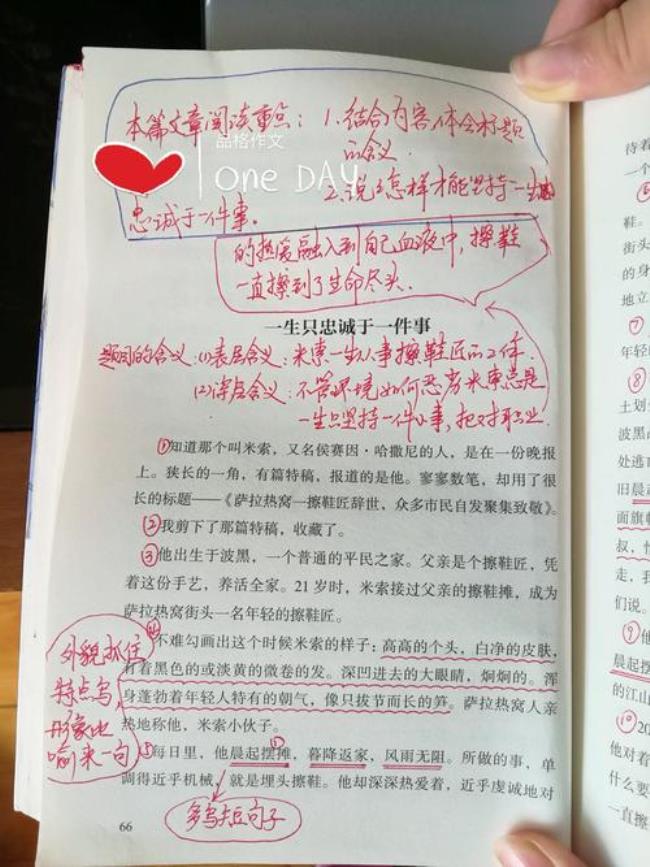 本篇文章阅读重点：1.结合内容,体会标题
的含义.
品格作文
one DAY
2.说说怎样才能坚持一生
忠诚于一件事。
的热爱融入到自己血液中,擦鞋
一直擦到了生命尽头.
一生只忠诚于一件事
题目的含义:(1)表层含义:米索一生从事擦鞋匠的工作.
(2)深层含义:不管环境如何恶劣米索总是
一生只坚持一件小事,把对职业
①知道那个叫米索，又名侯赛因·哈撒尼的人，是在一份晚报
上。狭长的一角，有篇特稿，报道的是他。寥寥数笔，却用了很
长的标题——《萨拉热窝一擦鞋匠辞世，众多市民自发聚集致敬》。
②我剪下了那篇特稿，收藏了。
③他出生于波黑，一个普通的平民之家。父亲是个擦鞋匠，凭
着这份手艺，养活全家。21岁时，米索接过父亲的擦鞋摊，成为
萨拉热窝街头一名年轻的擦鞋匠。
④不难勾画出这个时候米索的样子：高高的个头，白净的皮肤，
有着黑色的或淡黄的微卷的发。深凹进去的大眼睛，炯炯的。浑
身蓬勃着年轻人特有的朝气，像只拔节而长的笋。萨拉热窝人亲
热地称他，米索小伙子。
外貌抓住
特点写,
形象比
喻来一句
⑤每日里，他晨起摆摊，暮降返家，风雨无阻。所做的事，单
调得近乎机械，就是埋头擦鞋。他却深深热爱着，近乎虔诚地对
多写短句子
66
待着
一个
⑥
鞋。
街头
的身
地立
⑦
年轻的
⑧
土划
波黑
处逃
旧晨
面旗帜
叔，
走，我
们说。
⑨他
晨起摆
的江山
⑩20
他对着
什么要
一直擦